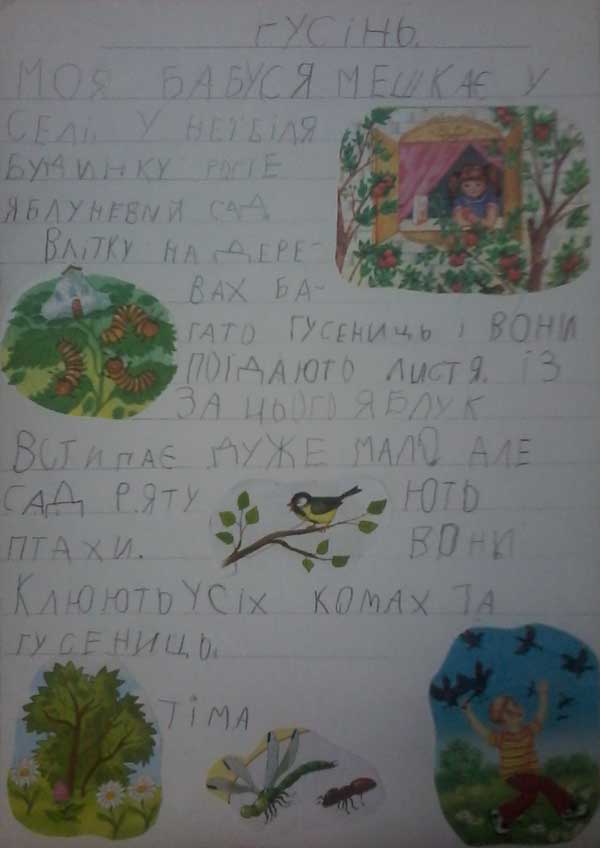 ГУСІНЬ.
МОЯ БАБУСЯ МЕШКАЄ У
СЕЛІ. У НЕЇ БІЛЯ
БУДИНКУ РОСТЕ
ЯБЛУНЕВИЙ САД
ВЛІТКУ НА ДЕРЕ-
ВАХ БА-
ГАТО ГУСЕНИЦЬ І ВОНИ
ПОЇДАЮТЬ ЛИСТЯ. ІЗ
ЗА ЦЬОГО ЯБЛУК
ВСТИГАЄ ДУЖЕ МАЛО АЛЕ
САД РЯТУ ЮТЬ
ПТАХИ. ВОНИ
КЛЮЮТЬ УСІХ КОМАХ ТА
ГУСЕНИЦЬ.
ТІМА